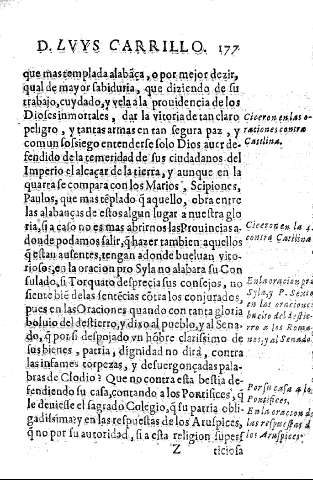 D. LVYS CARRILLO. 177
que mas templada alabãça, o por mejor dezir,
qual de mayor sabiduria, que diziendo de su
trabajo, cuydado, y vela a la prouidencia de los
Dioses inmortales, dar la vitoria de tan claro
peligro, y tantas armas en tan segura paz, y
comun sossiego entenderse solo Dios auer de-
fendido de la temeridad de sus ciudadanos del
Imperio el alcaçar de la tierra, y aunque en la
quarta se compara con los Marios, Scipiones,
Paulos, que mas tẽplado q̃ aquello, obra entre
las alabanças de estos algun lugar a nuestra glo
ria, si a caso no es mas abrirnos las Prouincias a
donde podamos salir, q̃ hazer tambien aquellos
q̃ estan ausentes, tengan adonde bueluan vito-
riosos, en la oracion pro Syla no alabara su Con
sulado, si Torquato desprecia sus consejos, no
siente biẽ de las sentẽcias cõtra los conjurados,
pues en las Oraciones quando con tanta gloria
boluio del destierro, y dixo al pueblo, y al Sena-
do, q̃ por si despojado vn hõbre clarissimo de
sus bienes, patria, dignidad no dirá, contra
las infames torpezas, y desuergonçadas pala-
bras de Clodio? Que no contra esta bestia de-
fendiendo su casa, contando a los Pontifices, q̃
le deuiesse el sagrado Colegio, q̃ su patria obli-
gadissima? y en las respuestas de los Aruspices,
q̃ no por su autoridad, si a esta religion supers
Z ticiosa
Ciceron en las o-
raciones contra
Catilina.
Ciceron en la 4.
contra Catilina
En la oracion pro
Syla, y P. Sextio
en las oraciones
buelto del destie-
rro a los Roma-
nos, y al Senado.
Por su casa a los
Pontifices,
En la oracion de
las respuestas de
los Aruspices.